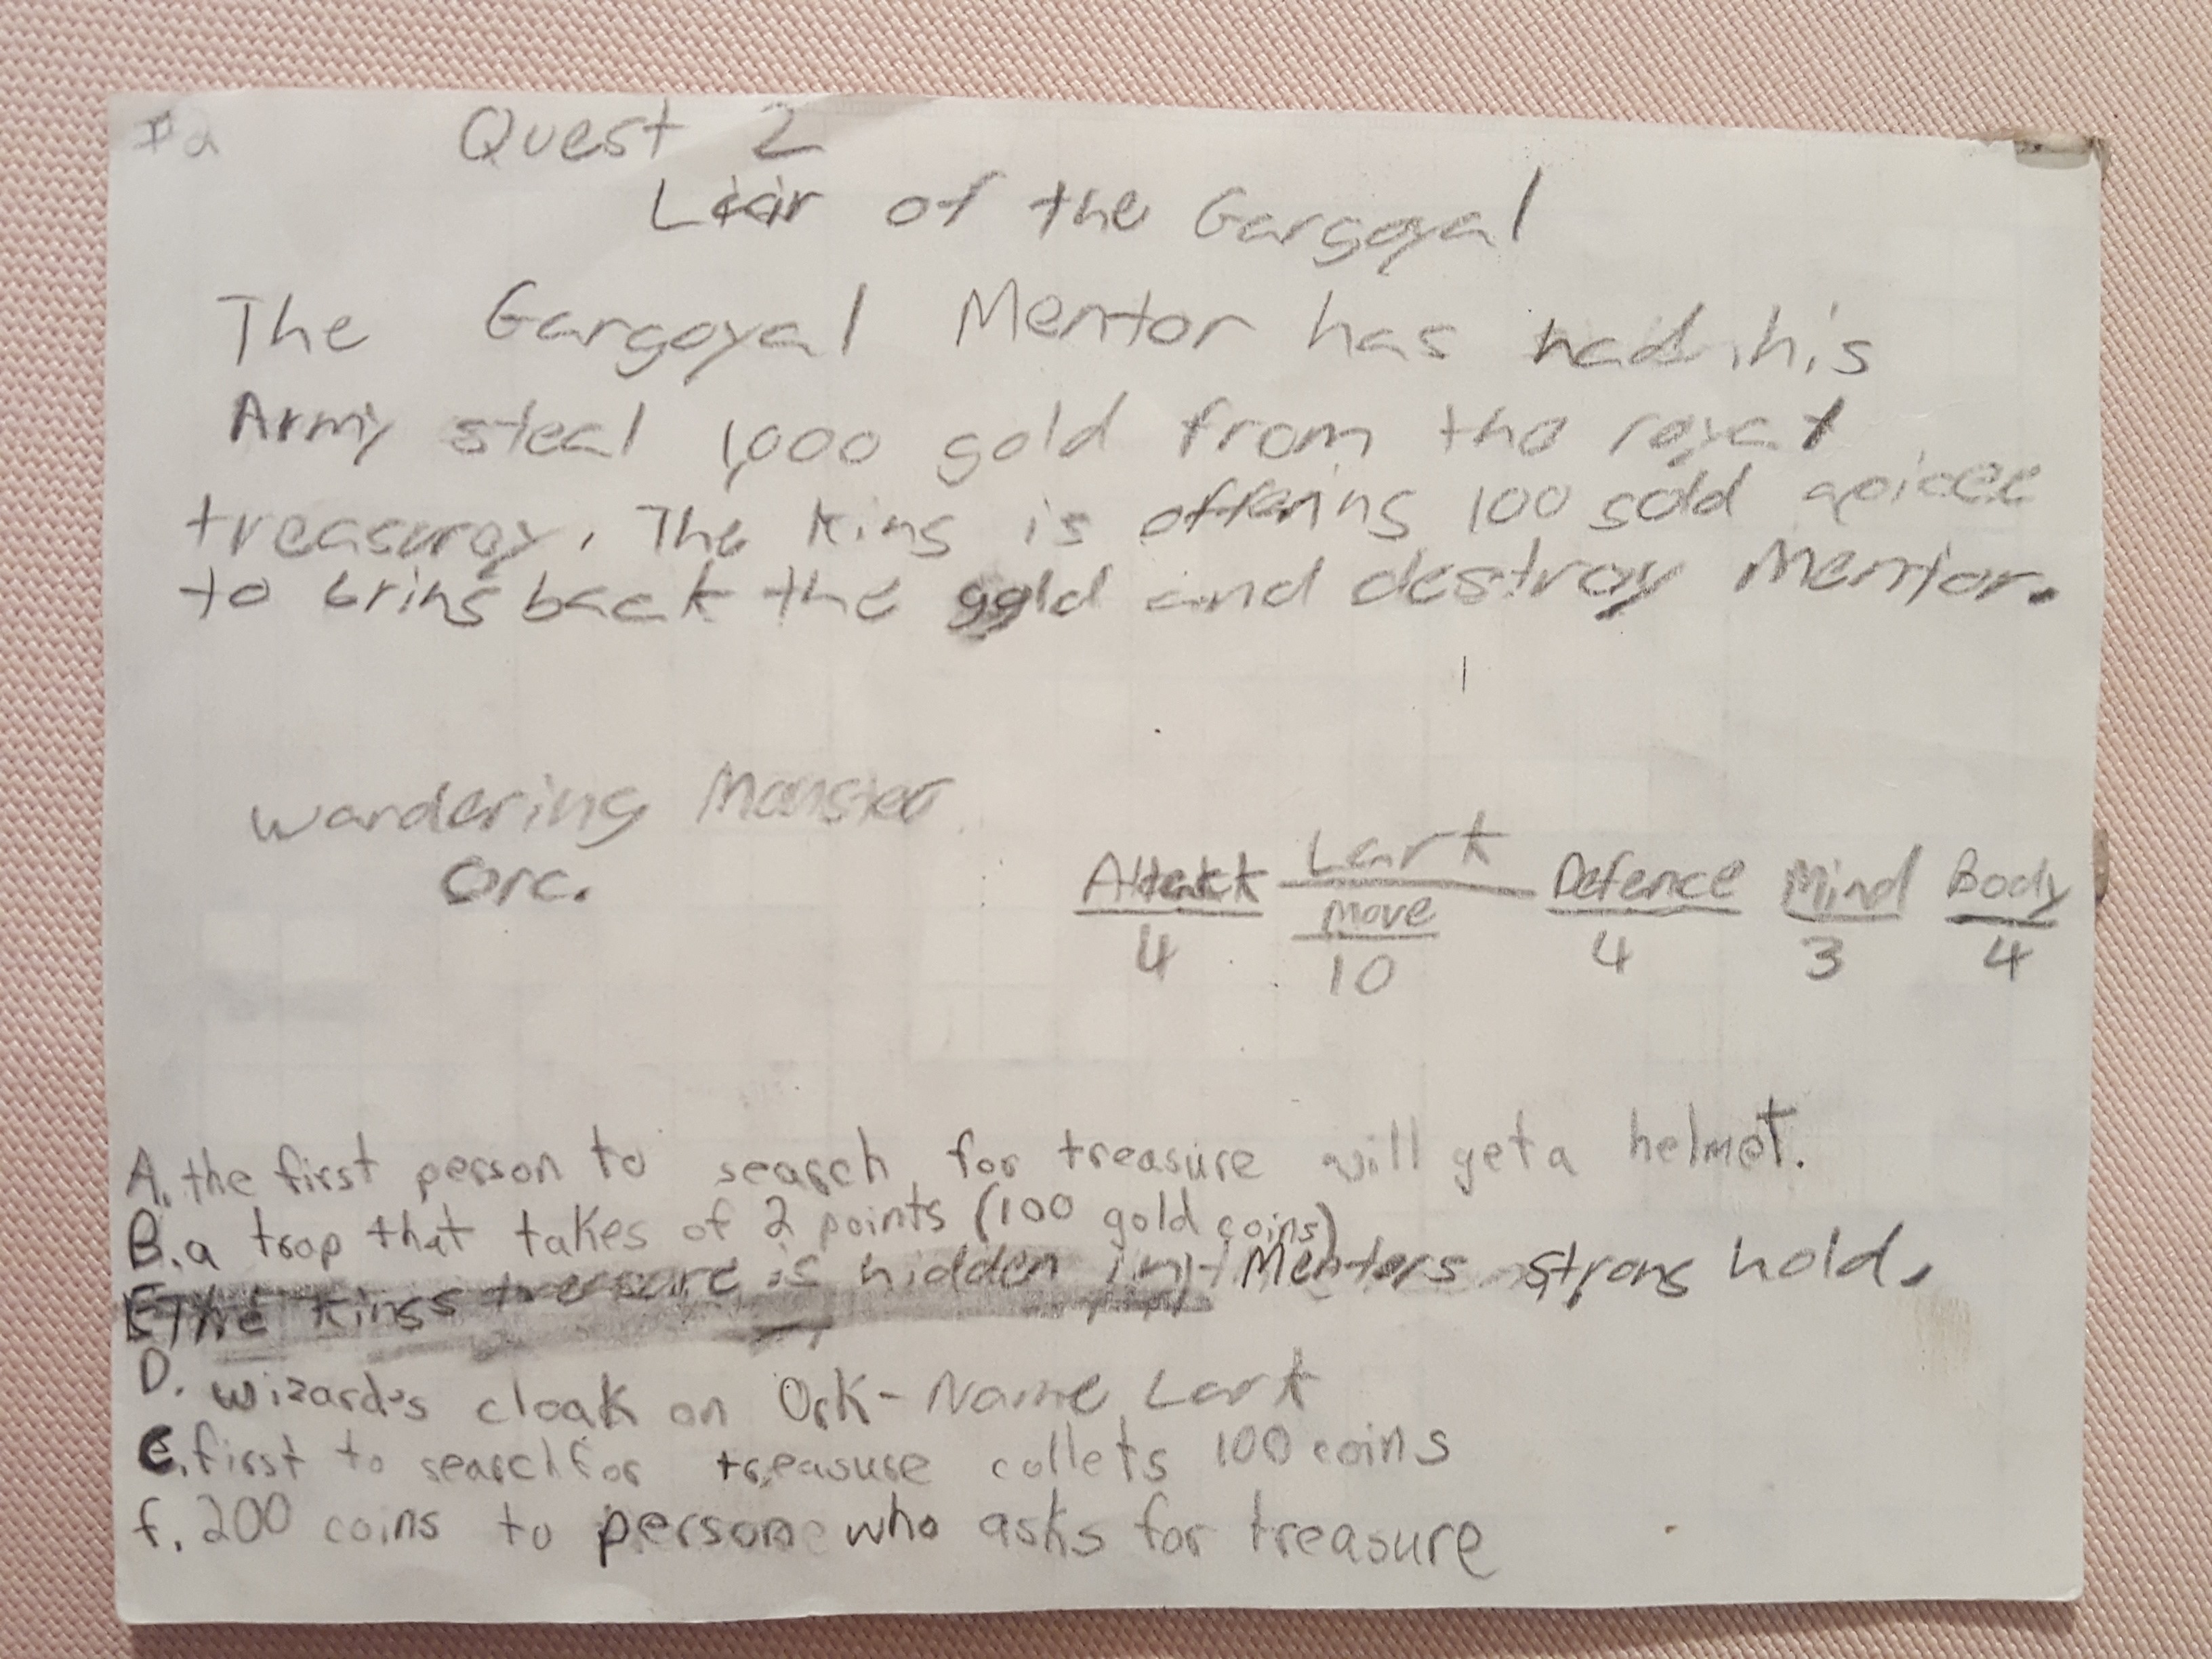 #2
Quest 2
Liair of the Gargoyal
The Gargoyal Mentor has had his
Army steal 1,000 gold from the royal
treasuroy. The King is offering 100 gold apicee
to bring back the gold and destroy Mentor.
Wandering Monster
Orc.
Lark
Attack Move Defence Mind Body
4 10 4 3 4
A. the first person to search for treasure will get a helmet.
B. a trap that takes of 2 points (100 gold coins)
The Kings treasure is hidden in Mentors strong hold.
D. wizard's cloak on Ork - Name Lark
C. first to search for treasure collets 100 coins
f. 200 coins to person who asks for treasure